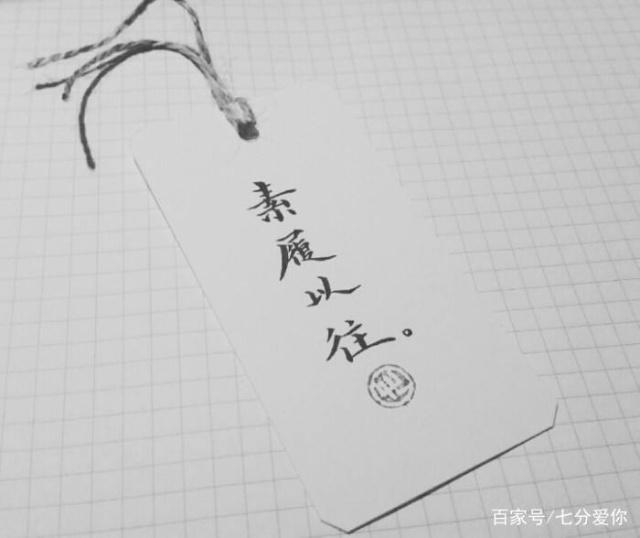 素履以往。
百家号/七分爱你